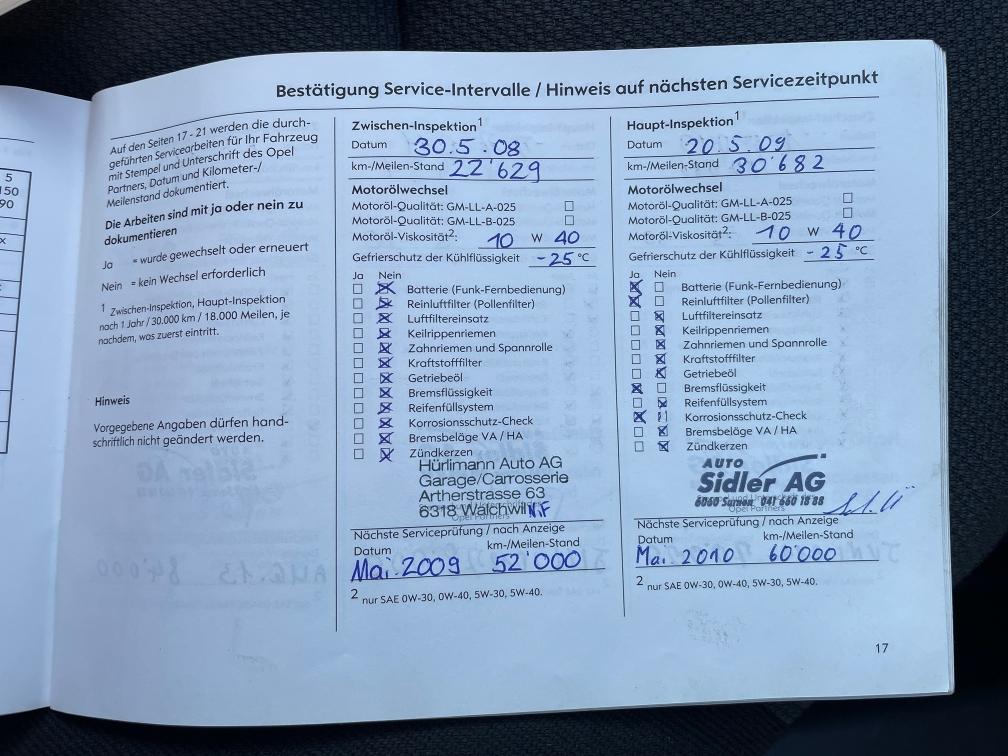 Bestätigung Service-Intervalle / Hinweis auf nächsten Servicezeitpunkt
Auf den Seiten 17 - 21 werden die durch-
geführten Servicearbeiten für Ihr Fahrzeug
mit Stempel und Unterschrift des Opel
Partners, Datum und Kilometer-/
Meilenstand dokumentiert.
Die Arbeiten sind mit ja oder nein zu
dokumentieren
Ja = wurde gewechselt oder erneuert
Nein = kein Wechsel erforderlich
1 Zwischen-Inspektion, Haupt-Inspektion
nach 1 Jahr / 30.000 km / 18.000 Meilen, je
nachdem, was zuerst eintritt.
Hinweis
Vorgegebene Angaben dürfen hand-
schriftlich nicht geändert werden.
Zwischen-Inspektion1
Datum 30.5.08
km-/Meilen-Stand 22'629
Motorölwechsel
Motoröl-Qualität: GM-LL-A-025
Motoröl-Qualität: GM-LL-B-025
Motoröl-Viskosität2: 10 W 40
Gefrierschutz der Kühlflüssigkeit -25 °C
Ja Nein
Batterie (Funk-Fernbedienung)
Reinluftfilter (Pollenfilter)
Luftfiltereinsatz
Keilrippenriemen
Zahnriemen und Spannrolle
Kraftstofffilter
Getriebeöl
Bremsflüssigkeit
Reifenfüllsystem
Korrosionsschutz-Check
Bremsbeläge VA / HA
Zündkerzen
Hürlimann Auto AG
Garage/Carrosserie
Artherstrasse 63
6318 Walchwil
Opel Partners
Nächste Serviceprüfung / nach Anzeige
Datum km-/Meilen-Stand
Mai.2009 52'000
2 nur SAE 0W-30, 0W-40, 5W-30, 5W-40.
Haupt-Inspektion1
Datum 20.5.09
km-/Meilen-Stand 30'682
Motorölwechsel
Motoröl-Qualität: GM-LL-A-025
Motoröl-Qualität: GM-LL-B-025
Motoröl-Viskosität2: 10 W 40
Gefrierschutz der Kühlflüssigkeit -25 °C
Ja Nein
Batterie (Funk-Fernbedienung)
Reinluftfilter (Pollenfilter)
Luftfiltereinsatz
Keilrippenriemen
Zahnriemen und Spannrolle
Kraftstofffilter
Getriebeöl
Bremsflüssigkeit
Reifenfüllsystem
Korrosionsschutz-Check
Bremsbeläge VA / HA
Zündkerzen
AUTO
Sidler AG
6060 Sarnen 041 660 18 88
Opel Partners
Nächste Serviceprüfung / nach Anzeige
Datum km-/Meilen-Stand
Mai. 2010 60'000
2 nur SAE 0W-30, 0W-40, 5W-30, 5W-40.
17
5
150
90
x